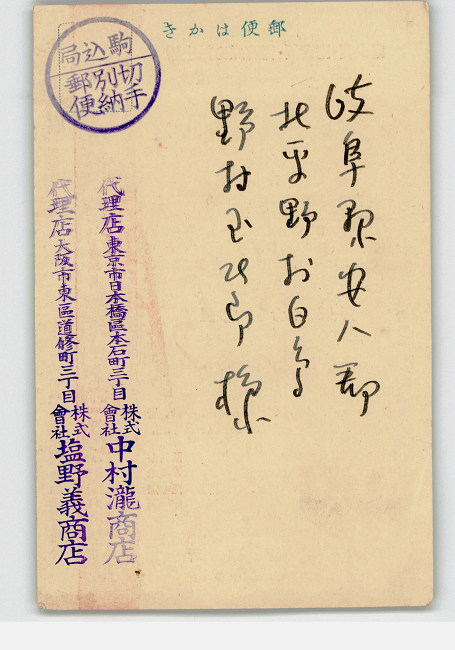 郵便はかき
岐阜県安八郡
北平野村白鳥
野村玉次郎様
駒込局
切手
別納
郵便
代理店 東京市日本橋區本石町三丁目 株式會社 中村瀧商店
代理店 大阪市東區道修町三丁目 株式會社 塩野義商店